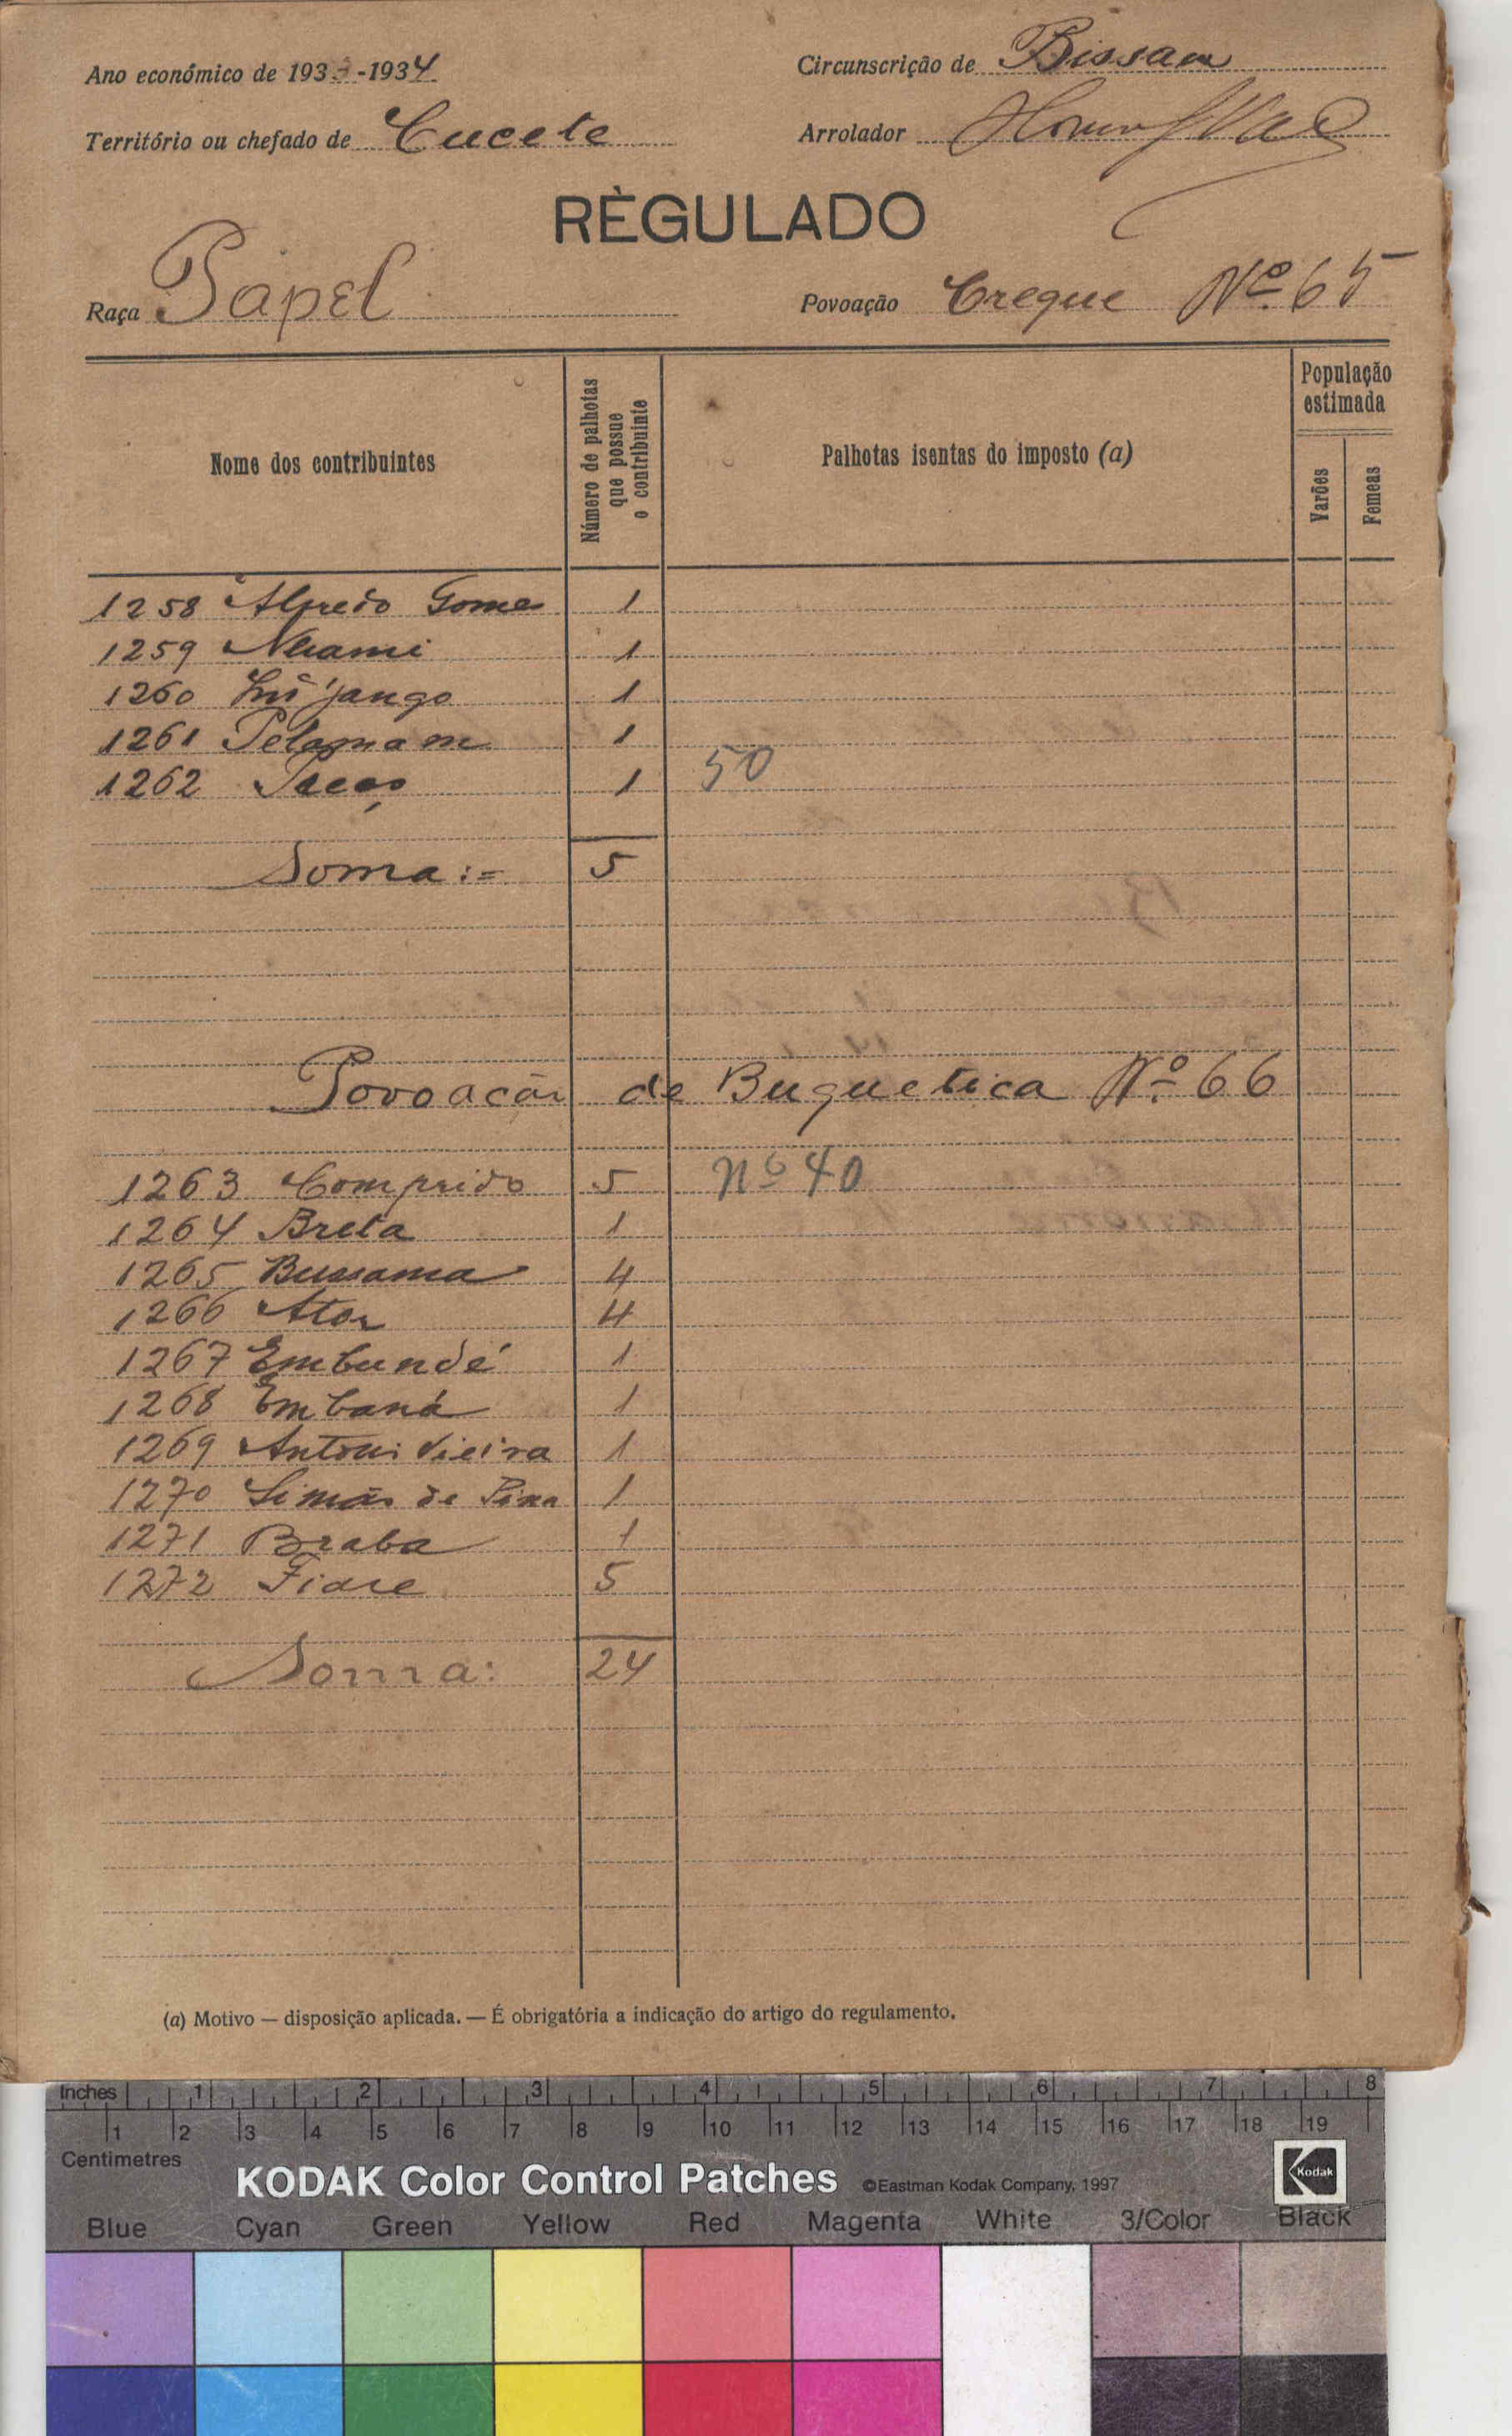 Ano económico de 1933-1934
Circunscrição de Bissau
Território ou chefado de Cucete
Arrolador
RÈGULADO
Raça Papel
Povoação Creque Nº 65
Nome dos contribuintes
Número de palhotas que possue o contribuinte
Palhotas isentas do imposto (a)
População estimada
Varões
Femeas
1258 Alfredo Gomes 1
1259 Nhami 1
1260 1
1261 1
1262 1 50
Soma:= 5
Povoação de Buquetica Nº 66
1263 Comprido 5 Nº 40
1264 Breta 1
1265 Bussama 4
1266 Ator 4
1267 Embundé 1
1268 Embaná 1
1269 Antoni Vieira 1
1270 Simão de Pina 1
1271 Braba 1
1272 Fiare 5
Soma: 24
(a) Motivo — disposição aplicada. — É obrigatória a indicação do artigo do regulamento.
Inches 1 2 3 4 5 6 7 8
1 2 3 4 5 6 7 8 9 10 11 12 13 14 15 16 17 18 19
Centimetres
KODAK Color Control Patches ©Eastman Kodak Company, 1997 Kodak
Blue Cyan Green Yellow Red Magenta White 3/Color Black